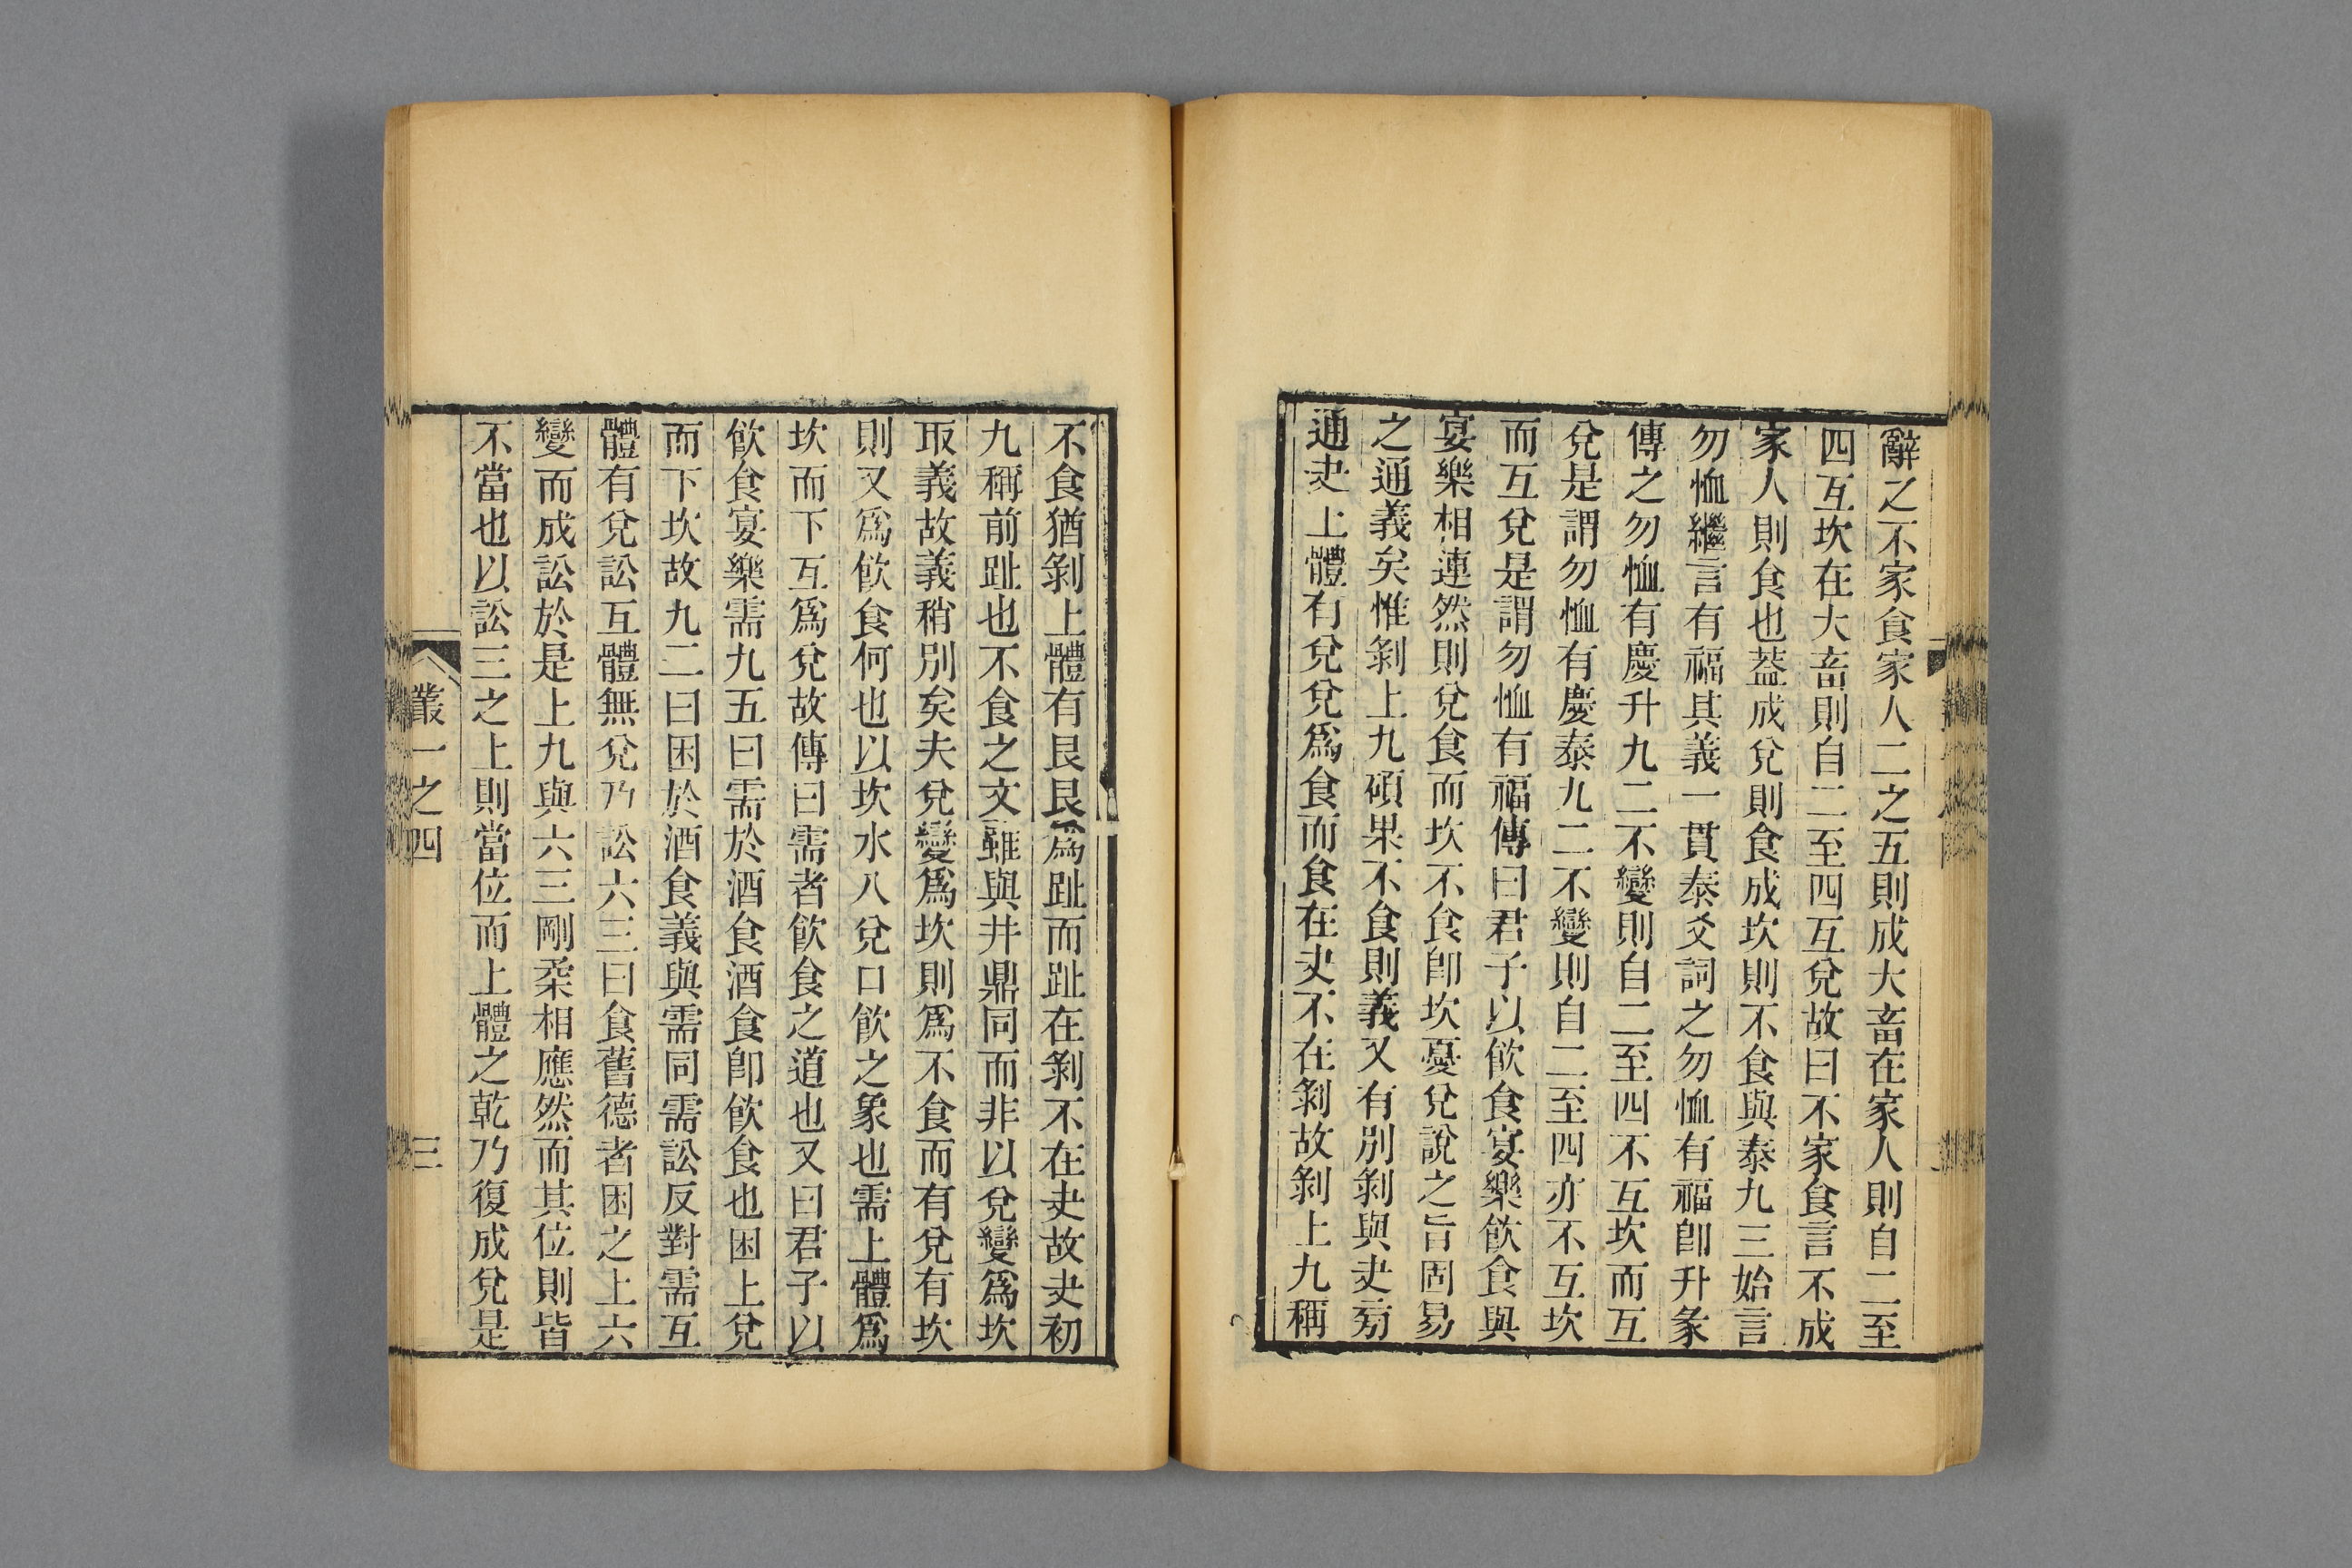 辭之不家食家人二之五則成大畜在家人則自二至
四互坎在大畜則自二至四互兌故曰不家食言不成
家人則食也葢成兌則食成坎則不食與泰九三始言
勿恤繼言有福其義一貫泰爻詞之勿恤有福卽升彖
傳之勿恤有慶升九二不變則自二至四不互坎而互
兌是謂勿恤有慶泰九二不變則自二至四亦不互坎
而互兌是謂勿恤有福傳曰君子以飮食宴樂飮食與
宴樂相連然則兌食而坎不食卽坎憂兌說之旨固易
之通義矣惟剝上九碩果不食則義又有別剝與夬旁
通夬上體有兌兌爲食而食在夬不在剝故剝上九稱
不食猶剝上體有艮艮爲趾而趾在剝不在夬故夬初
九稱前趾也不食之文雖與井鼎同而非以兌變爲坎
取義故義稍別矣夫兌變爲坎則爲不食而有兌有坎
則又爲飮食何也以坎水入兌口飮之象也需上體爲
坎而下互爲兌故傳曰需者飮食之道也又曰君子以
飮食宴樂需九五曰需於酒食酒食卽飮食也困上兌
而下坎故九二曰困於酒食義與需同需訟反對需互
體有兌訟互體無兌乃訟六三曰食舊德者困之上六
變而成訟於是上九與六三剛柔相應然而其位則皆
不當也以訟三之上則當位而上體之乾乃復成兌是
叢一之四
三